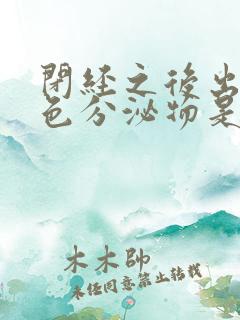 閉經之後出
色分泌物是
木木帥
未經同意禁止轉載